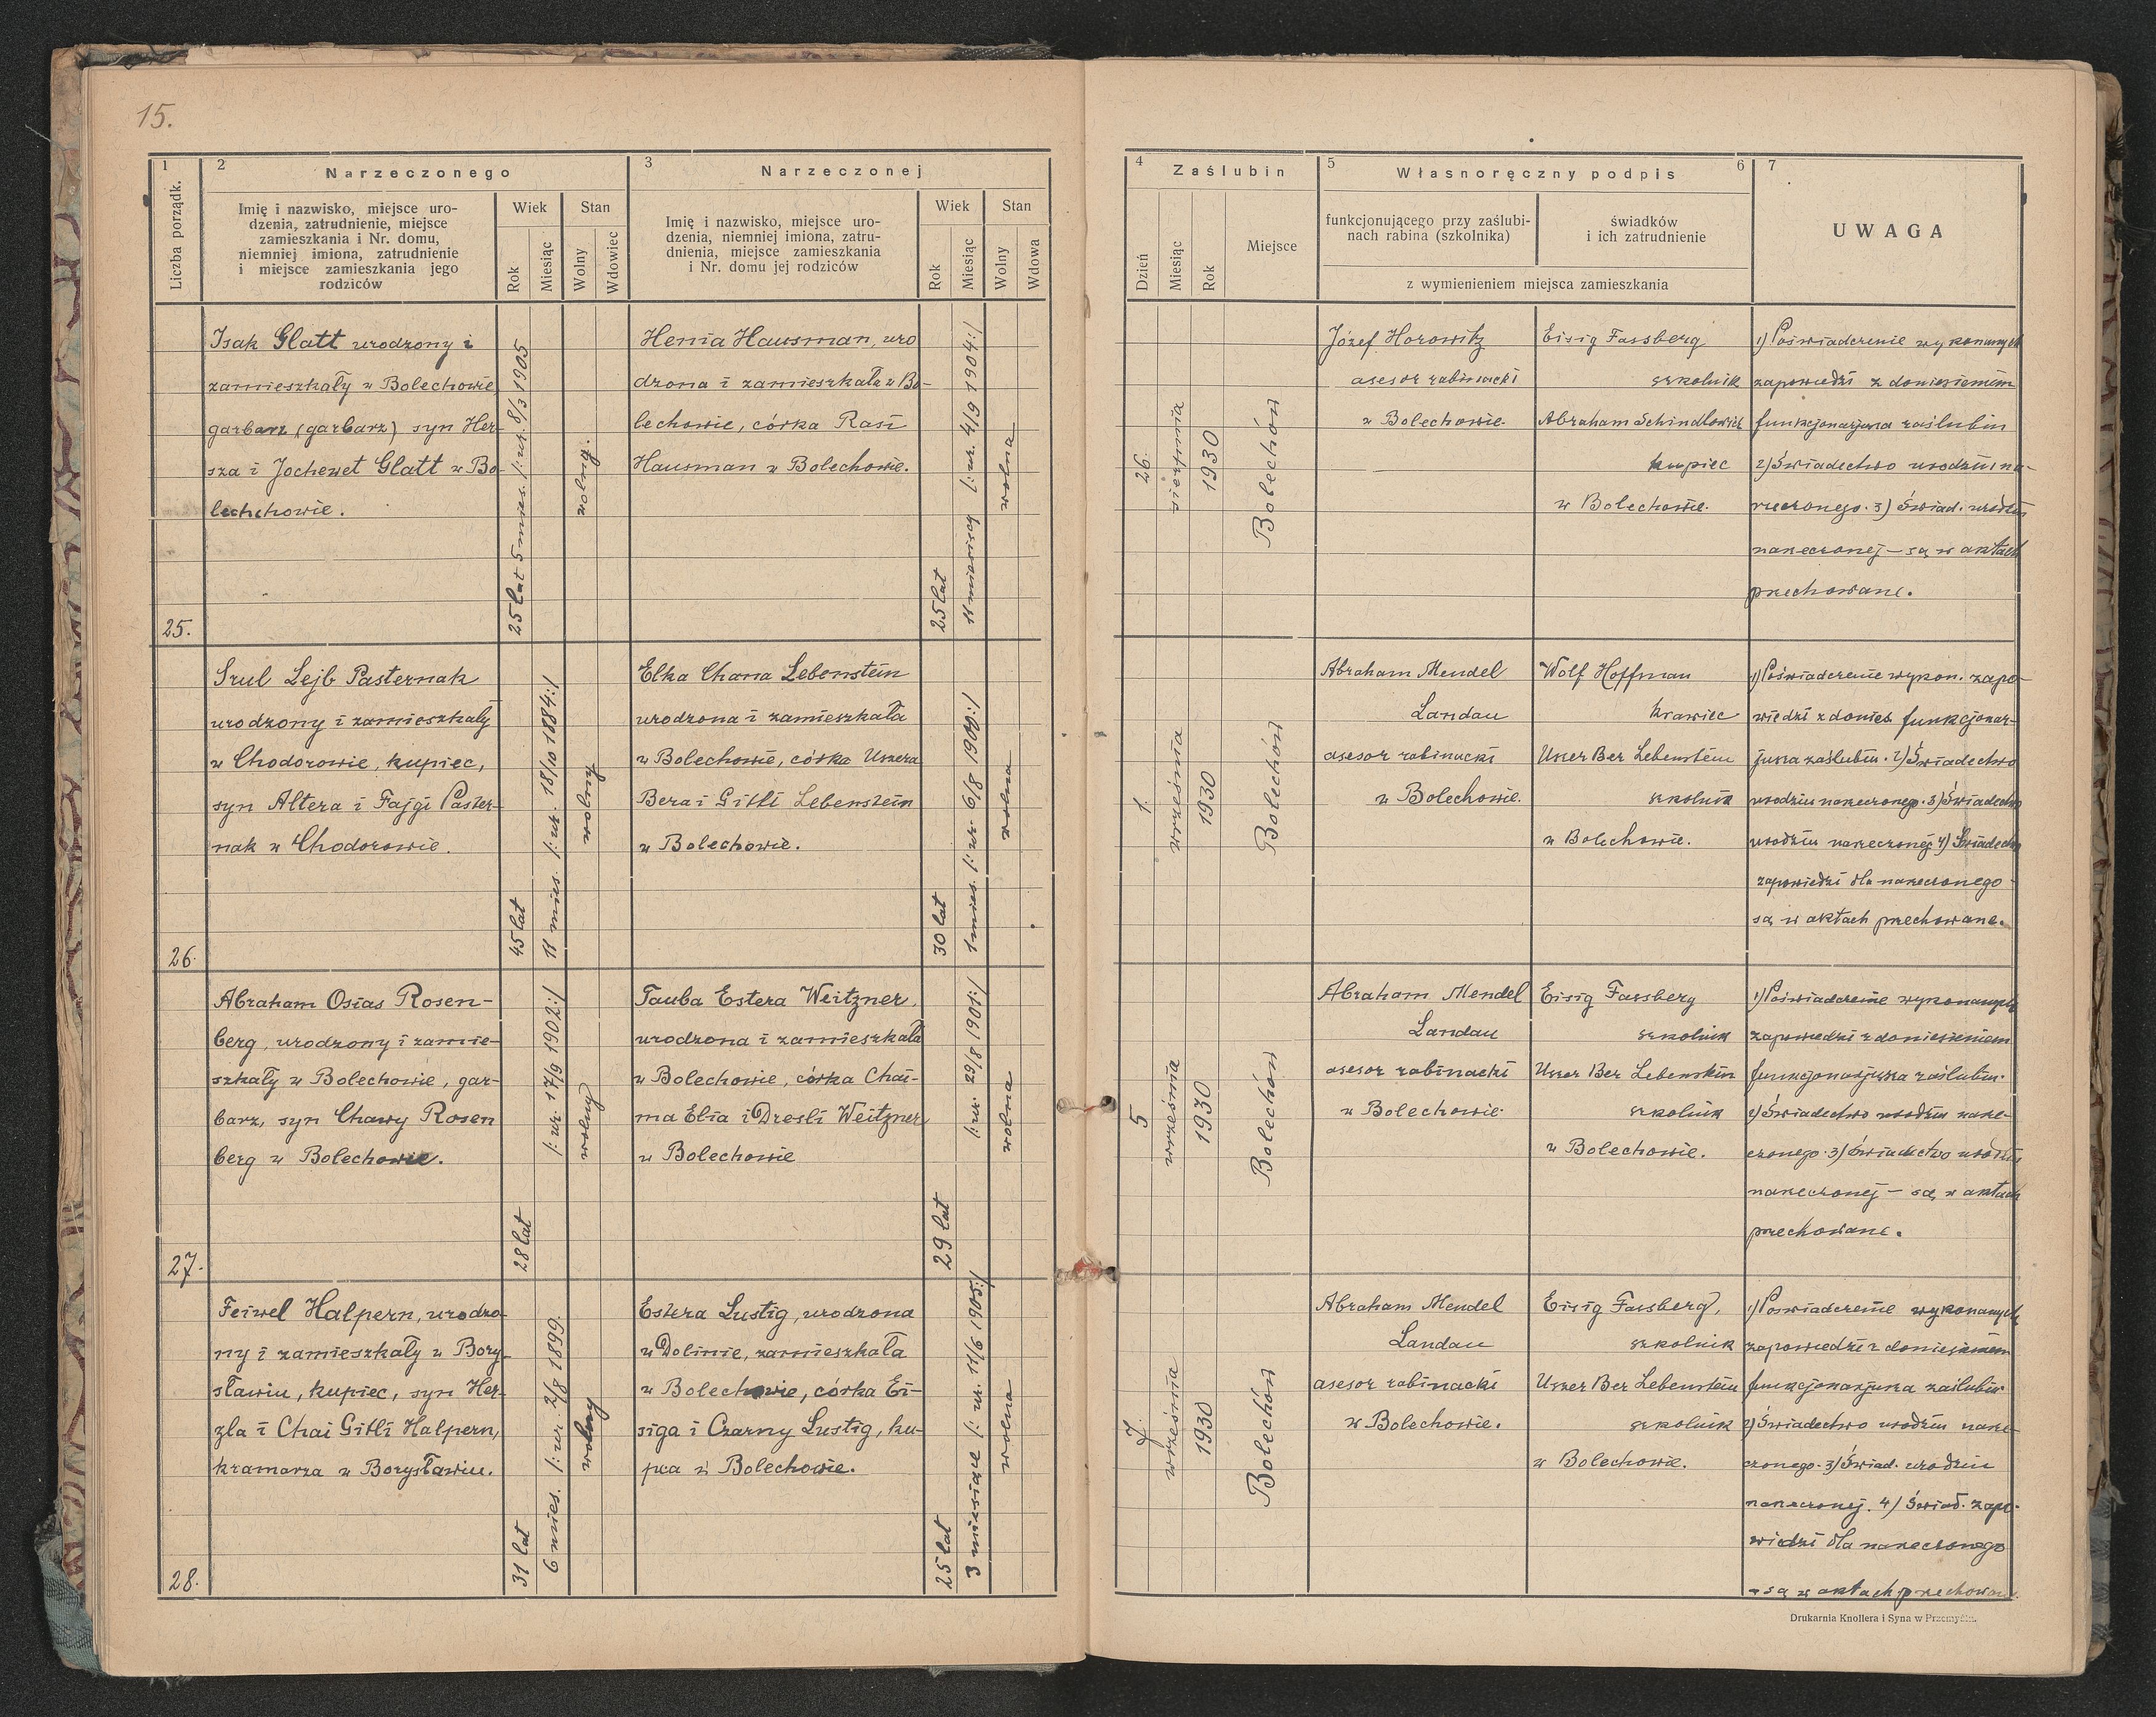 15.
1
2
Narzeczonego
3
Narzeczonej
Liczba porządk.
Imię i nazwisko, miejsce uro-
dzenia, zatrudnienie, miejsce
zamieszkania i Nr. domu,
niemniej imiona, zatrudnienie
i miejsce zamieszkania jego
rodziców
Wiek
Stan
Rok
Miesiąc
Wolny
Wdowiec
Imię i nazwisko, miejsce uro-
dzenia, niemniej imiona, zatru-
dnienia, miejsce zamieszkania
i Nr. domu jej rodziców
Wiek
Stan
Rok
Miesiąc
Wolny
Wdowa
25.
Isak Glatt urodzony i
zamieszkały w Bolechowie
garbarz (garbarz) syn Her-
sza i Jochewet Glatt w Bo-
lechchowie.
25 lat 5 mies. /: ur. 8/3 1905
wolny.
Henia Hausman, uro
dzona i zamieszkała w Bo-
lechowie, córka Rasi
Hausman w Bolechowie.
25 lat
11 miesięcy /: ur. 4/9 1904:/
wolna
26.
Srul Lejb Pasternak
urodzony i zamieszkały
w Chodorowie, kupiec,
syn Altera i Fajgi Paster-
nak w Chodorowie.
45 lat
11 mies. /: ur. 18/10 1884:/
wolny
Elka Chana Lebenstein
urodzona i zamieszkała
w Bolechowie, córka Uszera
Bera i Gitli Lebenstein
w Bolechowie.
30 lat
1 mies. /: ur. 6/8 1900:/
wolna
27.
Abraham Osias Rosen-
berg, urodzony i zamie-
szkały w Bolechowie, gar-
barz, syn Chawy Rosen
berg w Bolechowie.
28 lat
/: ur. 17/9 1902:/
wolny
Tauba Estera Weitzner,
urodzona i zamieszkała
w Bolechowie, córka Chai-
ma Elia i Dresli Weitzner
w Bolechowie
29 lat
/: ur. 29/8 1901:/
wolna
28.
Feiwel Halpern, urodzo-
ny i zamieszkały w Bory-
sławiu, kupiec, syn Her-
zla i Chai Gitli Halpern,
kramarza w Borysławiu.
31 lat
6 mies. /: ur. 2/8 1899.
wolny
Estera Lustig, urodzona
w Dolinie, zamieszkała
w Bolechowie, córka Ei-
siga i Czarny Lustig, ku-
pca w Bolechowie.
25 lat
3 miesiące /: ur. 11/6 1905:/
wolna
4
Zaślubin
5
Własnoręczny podpis
6
7
Dzień
Miesiąc
Rok
Miejsce
funkcjonującego przy zaślubi-
nach rabina (szkolnika)
świadków
i ich zatrudnienie
z wymienieniem miejsca zamieszkania
UWAGA
26.
sierpnia
1930
Bolechów
Józef Horowitz
asesor rabinacki
w Bolechowie.
Eisig Fassberg
szkolnik
Abraham Schindlowicz
kupiec
w Bolechowie.
1) Poświadczenie wykonanych
zapowiedzi z doniesieniem
funkcjonarjusza zaślubin
2) Świadectwo urodzin na-
rzeczonego. 3) Świad. urodzin
narzeczonej – są w aktach
przechowane.
1.
września
1930
Bolechów
Abraham Mendel
Landau
asesor rabinacki
w Bolechowie.
Wolf Hoffman
krawiec
Uszer Ber Lebenstein
szkolnik
w Bolechowie.
1) Poświadczenie wykon. zapo-
wiedzi z donies. funkcjonar-
jusza zaślubin. 2) Świadectwo
urodzin narzeczonego. 3) Świadectwo
urodzin narzeczonej 4) Świadectwo
zapowiedzi dla narzeczonego
są w aktach przechowane.
5
września
1930
Bolechów
Abraham Mendel
Landau
asesor rabinacki
w Bolechowie.
Eisig Fassberg
szkolnik
Uszer Ber Lebenstein
szkolnik
w Bolechowie.
1) Poświadczenie wykonanych
zapowiedzi z doniesieniem
funkcjonarjusza zaślubin.
2) Świadectwo urodzin narze-
czonego. 3) Świadectwo urodzin
narzeczonej – są w aktach
przechowane.
7.
września
1930
Bolechów
Abraham Mendel
Landau
asesor rabinacki
w Bolechowie.
Eisig Fassberg,
szkolnik
Uszer Ber Lebenstein
szkolnik
w Bolechowie.
1) Poświadczenie wykonanych
zapowiedzi z doniesieniem
funkcjonarjusza zaślubin
2) Świadectwo urodzin narze-
czonego. 3) Świad. urodzin
narzeczonej. 4) Świad. zapo-
wiedzi dla narzeczonego
– są w aktach przechowane.
Drukarnia Knollera i Syna w Przemyślu.